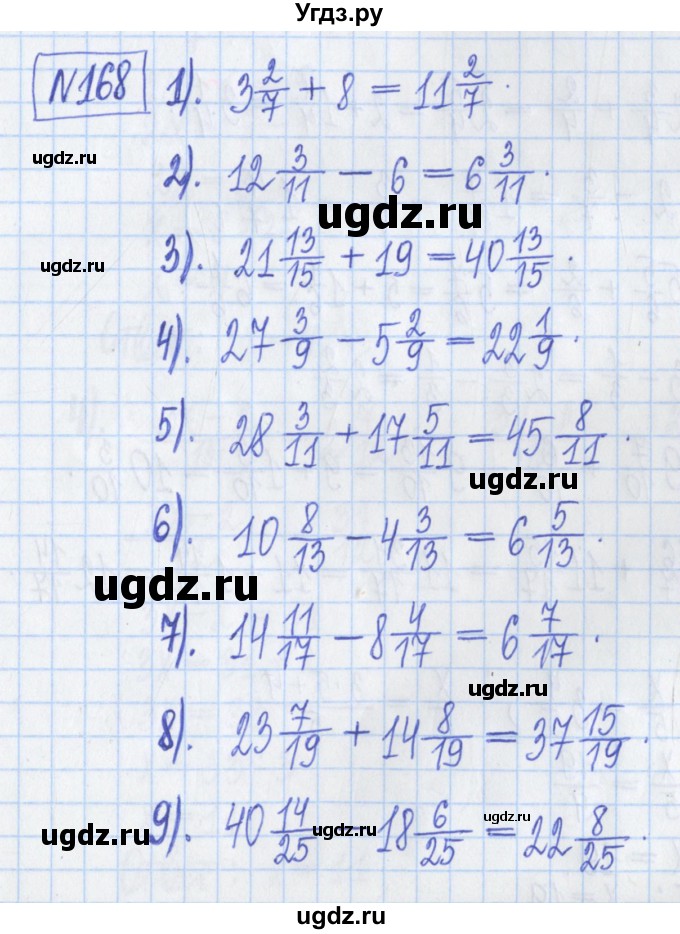 Угдз.ру
№168 1). 3 2/7 + 8 = 11 2/7.
ugdz.ru
2). 12 3/11 − 6 = 6 3/11.
ugdz.ru
3). 21 13/15 + 19 = 40 13/15.
ugdz.ru
4). 27 3/9 − 5 2/9 = 22 1/9.
5). 28 3/11 + 17 5/11 = 45 8/11.
ugdz.ru
6). 10 8/13 − 4 3/13 = 6 5/13.
ugdz.ru
7). 14 11/17 − 8 4/17 = 6 7/17.
ugdz.ru
8). 23 7/19 + 14 8/19 = 37 15/19.
9). 40 14/25 − 18 6/25 = 22 8/25.
ugdz.ru
ugdz.ru
ugdz.ru
ugdz.ru